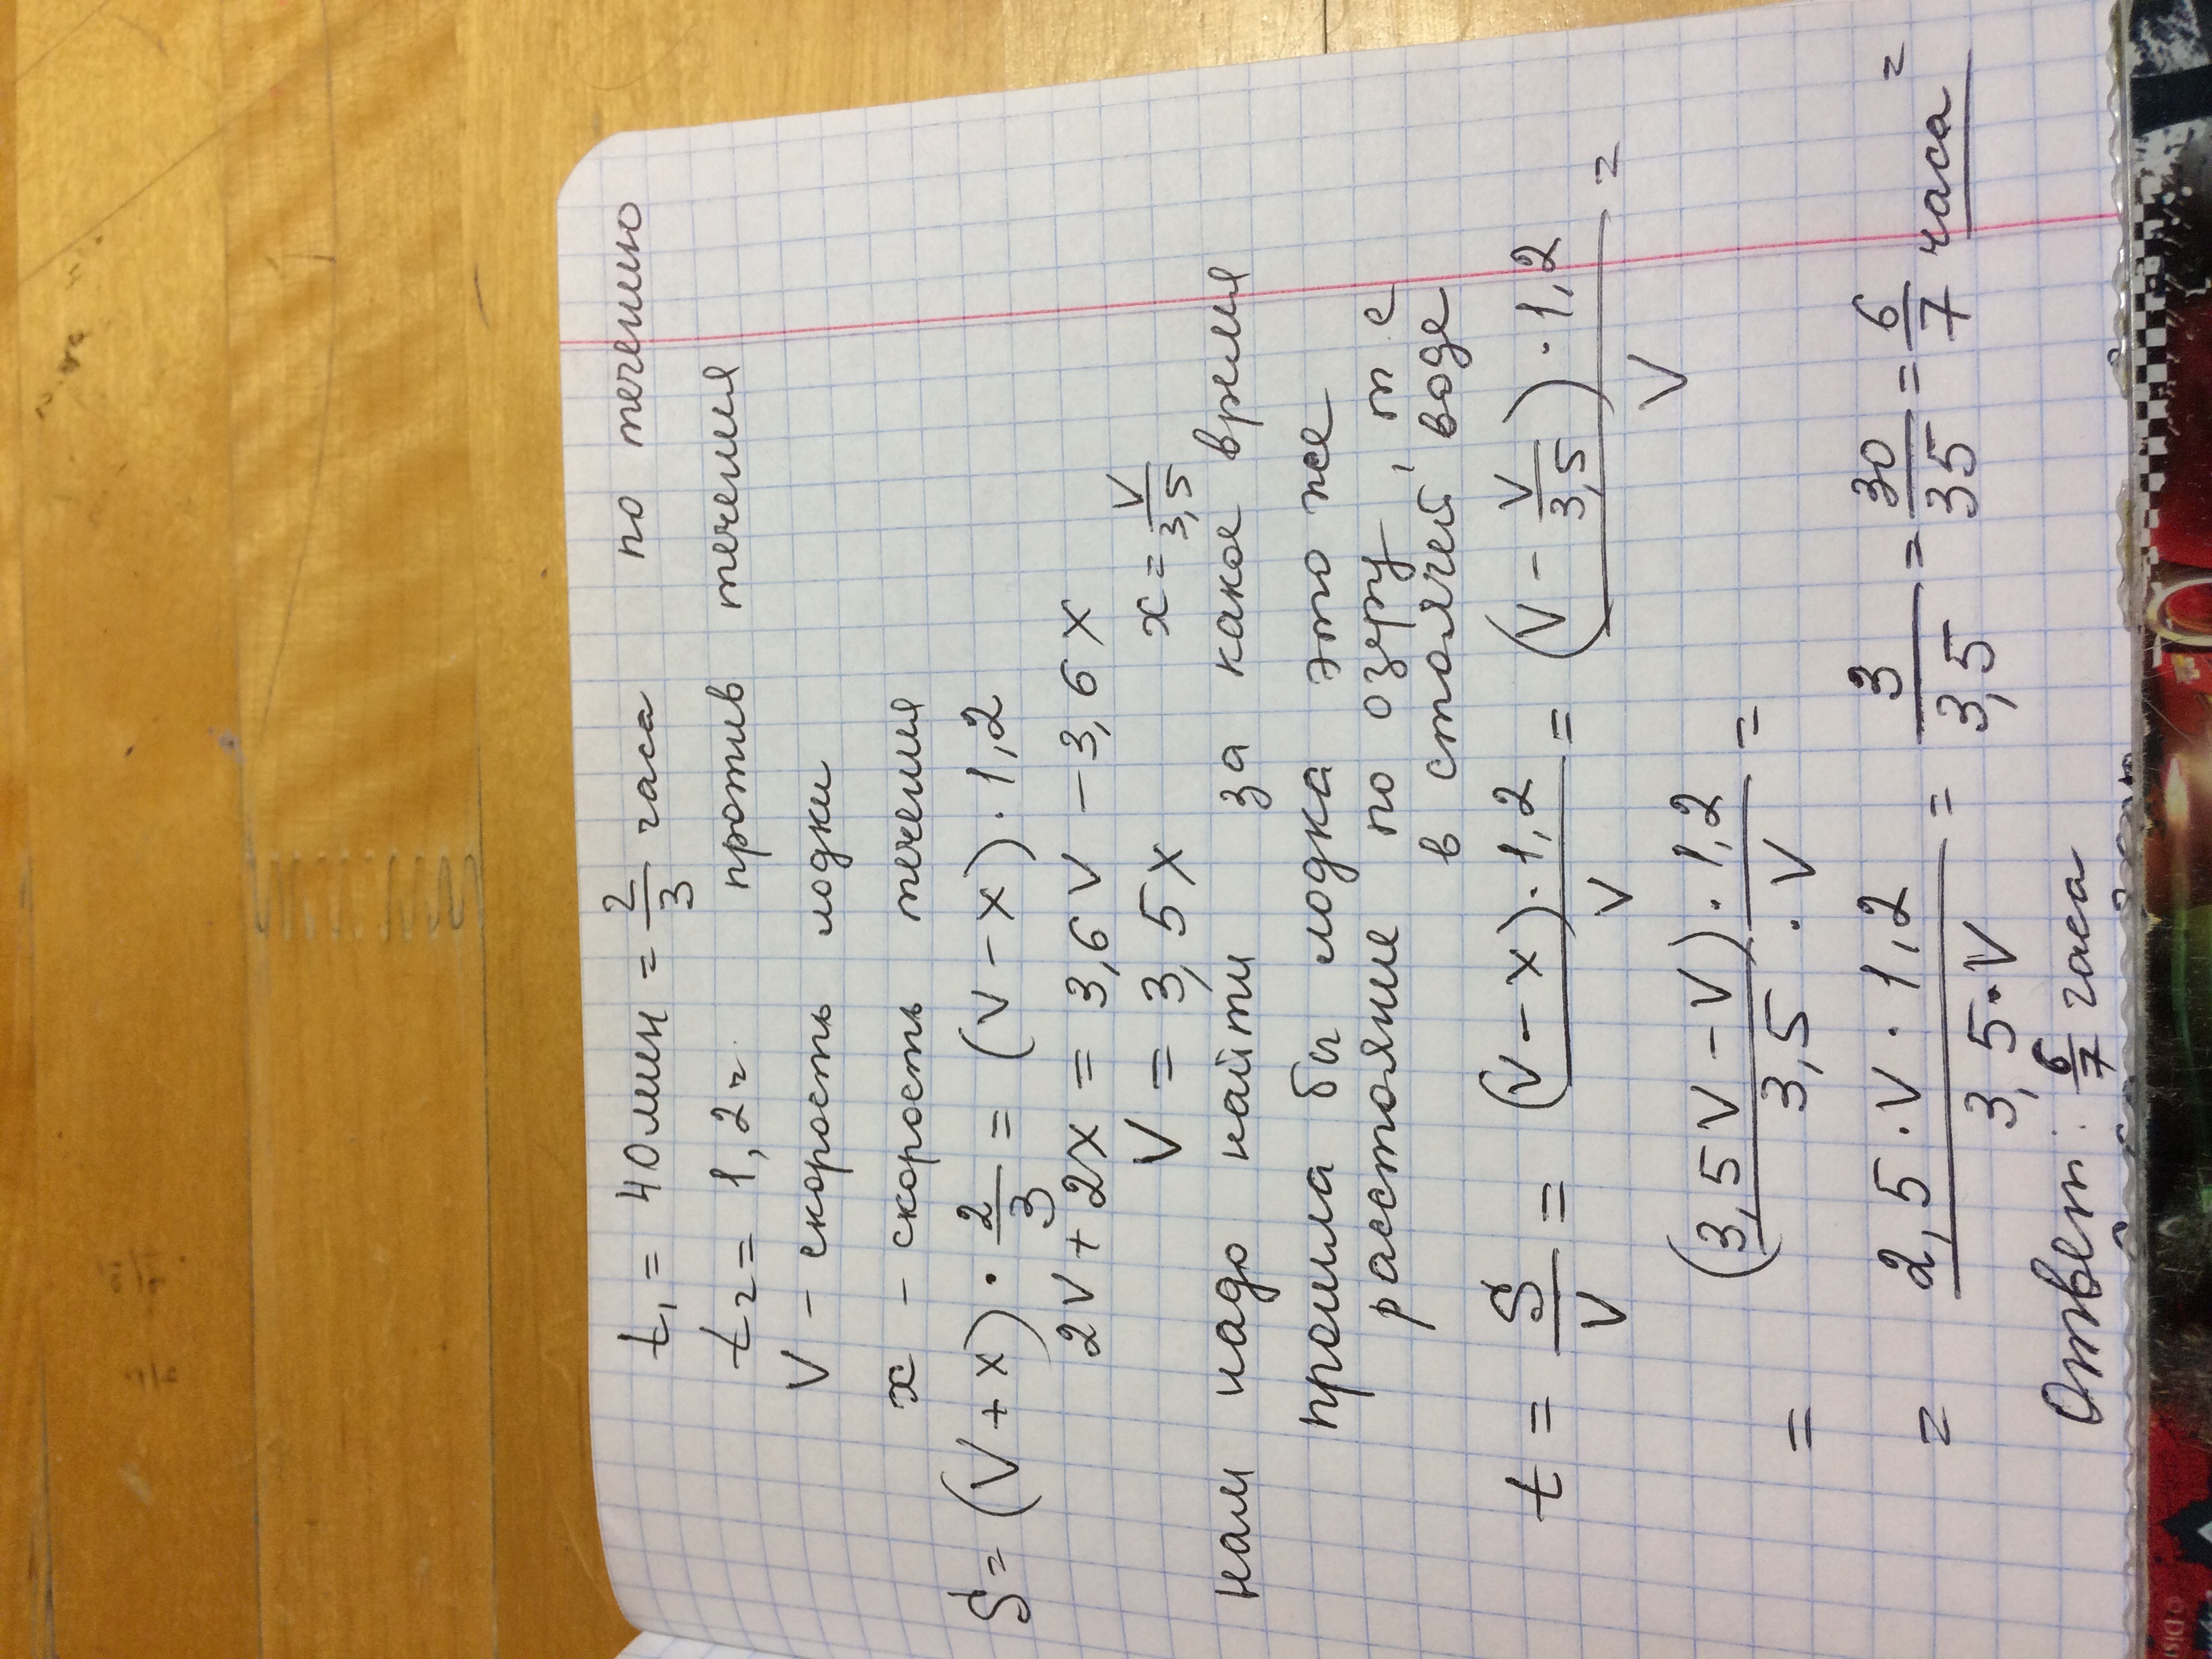 t₁ = 40 мин = 2/3 часа по течению
t₂ = 1,2 ч против течения
V – скорость лодки
x – скорость течения
S = (V + x) · 2/3 = (V – x) · 1,2
2V + 2x = 3,6V – 3,6x
V = 3,5x x = V/3,5
нам надо найти за какое время
прошла бы лодка это же
расстояние по озеру, т е
в стоячей воде
t = S/V = (V – x) · 1,2/V = (V – V/3,5) · 1,2/V =
= (3,5V – V) · 1,2/3,5 · V =
= 2,5 · V · 1,2/3,5 · V = 3/3,5 = 30/35 = 6/7 часа =
Ответ: 6/7 часа